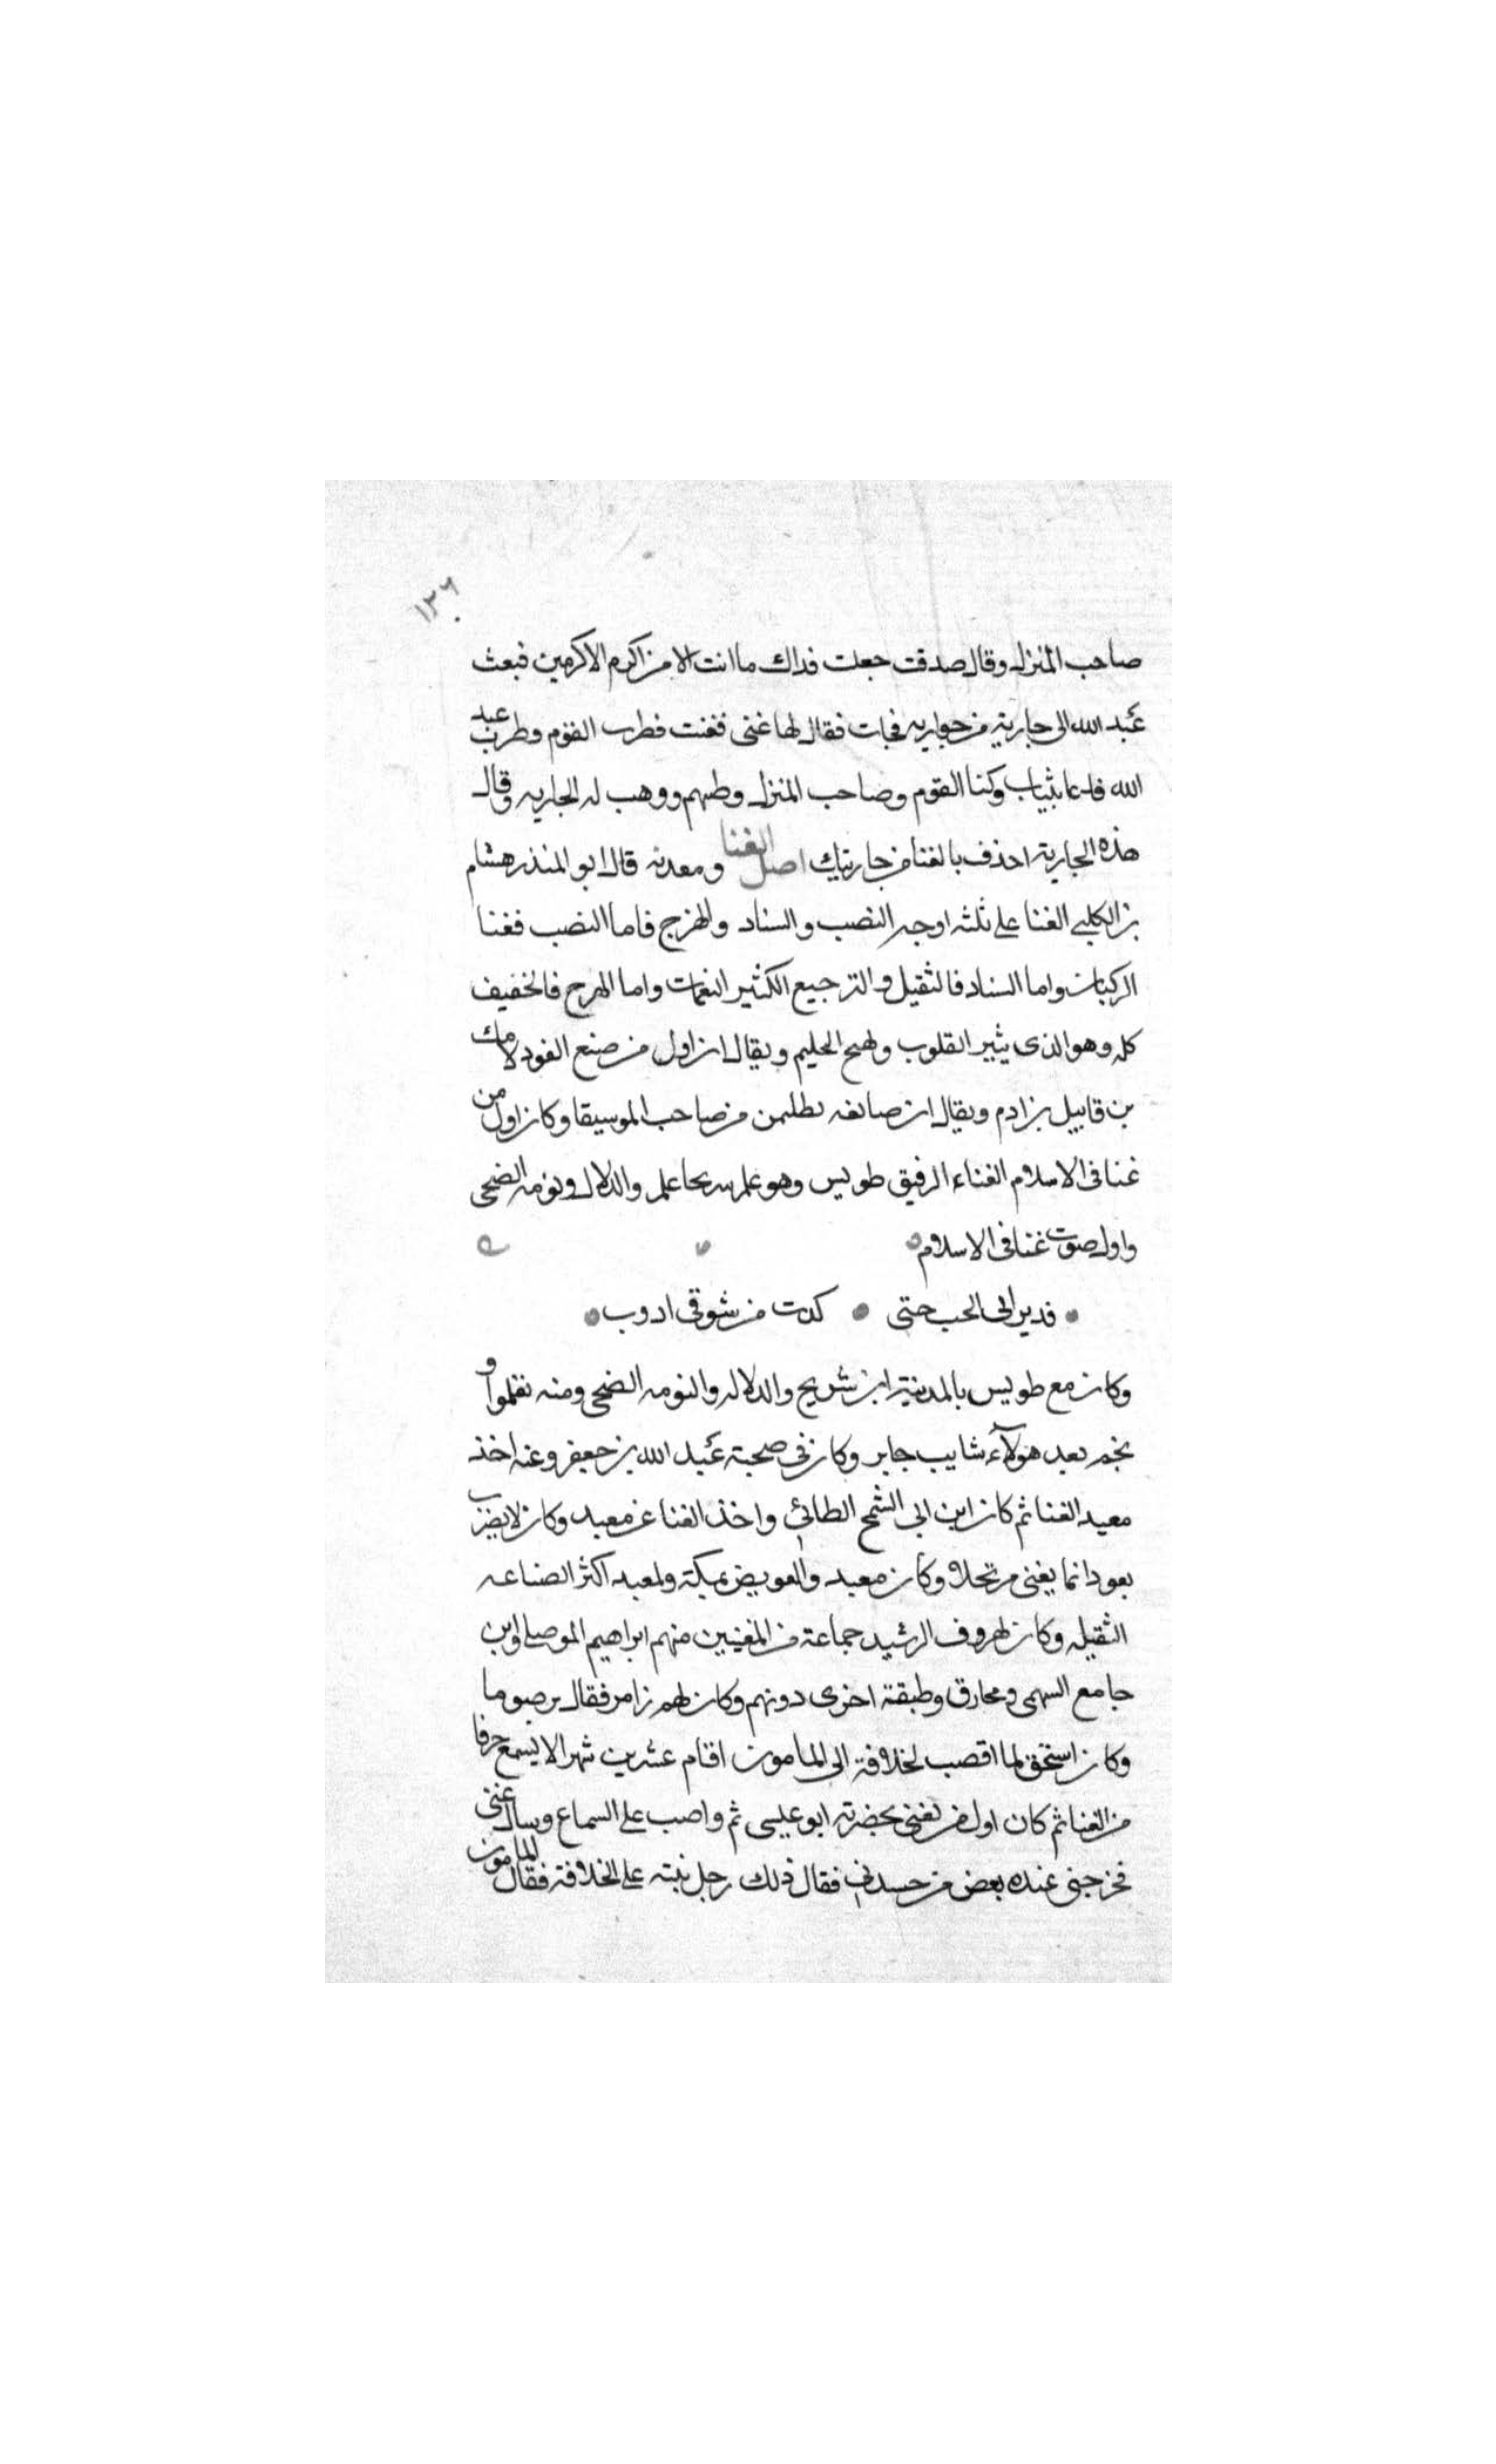 ١٣٦
صاحب المنزل وقال صدقت جعلت فداك ما انت الا من اكرم الاكرمين فبعث
عبد الله الى جارية من جواريه فجات فقال لها غنى فغنت فطرب القوم وطرب عبد
الله فدعا بثياب وكنا القوم وصاحب المنزل وطيبهم ووهب له الجاريه وقال
هذه الجارية احذف بالغنا من جاريتك اصل الغنا ومعدنه قال ابو المنذر هشام
بن الكلبي الغنا على ثلثه اوجه النصب والسناد والهزج فاما النصب فغنا
الركبان واما السناد فالثقيل والترجيع الكثير النغمات واما الهزج فالخفيف
كله وهو الذى يثير القلوب ويهيج الحليم ويقال ان اول من صنع العود لامك
بن قابيل بن ادم ويقال ان صانعه بطليمن من صاحب الموسيقا وكان اول من
غنا فى الاسلام الغناء الرفيق طويس وهو علم سريحا علم والدلال ونومة الضحى
واول صوت غنا فى الاسلام
قد يرانى الحب حتى كدت من شوقى ادوب
وكان مع طويس بالمدينة ابن شريح والدلال والنومه الضحى ومنه تعلموا و
نجم بعد هولاء شايب جابر وكان فى صحبة عبد الله بن جعفر وعنه اخذ
معبد الغنا ثم كان ابن ابى الشمح الطائي واخذ الغنا عن معبد وكان لا يضرب
بعود انما يغنى مرتجلا وكان معبد والعويض بمكة ولمعبد اكثر الصناعه
الثقيله وكان لهروف الرشيد جماعة من المغنيين منهم ابراهيم الموصلى وابن
جامع السهمى ومخارق وطبقة اخرى دونهم وكان لهم زامر فقال برصوما
وكان اسحق لما اقصب لخلافة الى المامون اقام عشرين شهرا لا يسمع حرفا
من الغنا ثم كان اول من تغنى بحضرته ابو عيسى ثم واصب على السماع وسال عنى
فخرجنى عنده بعض من حسدنى فقال ذلك رجل نبته على الخلافة فقال المامون